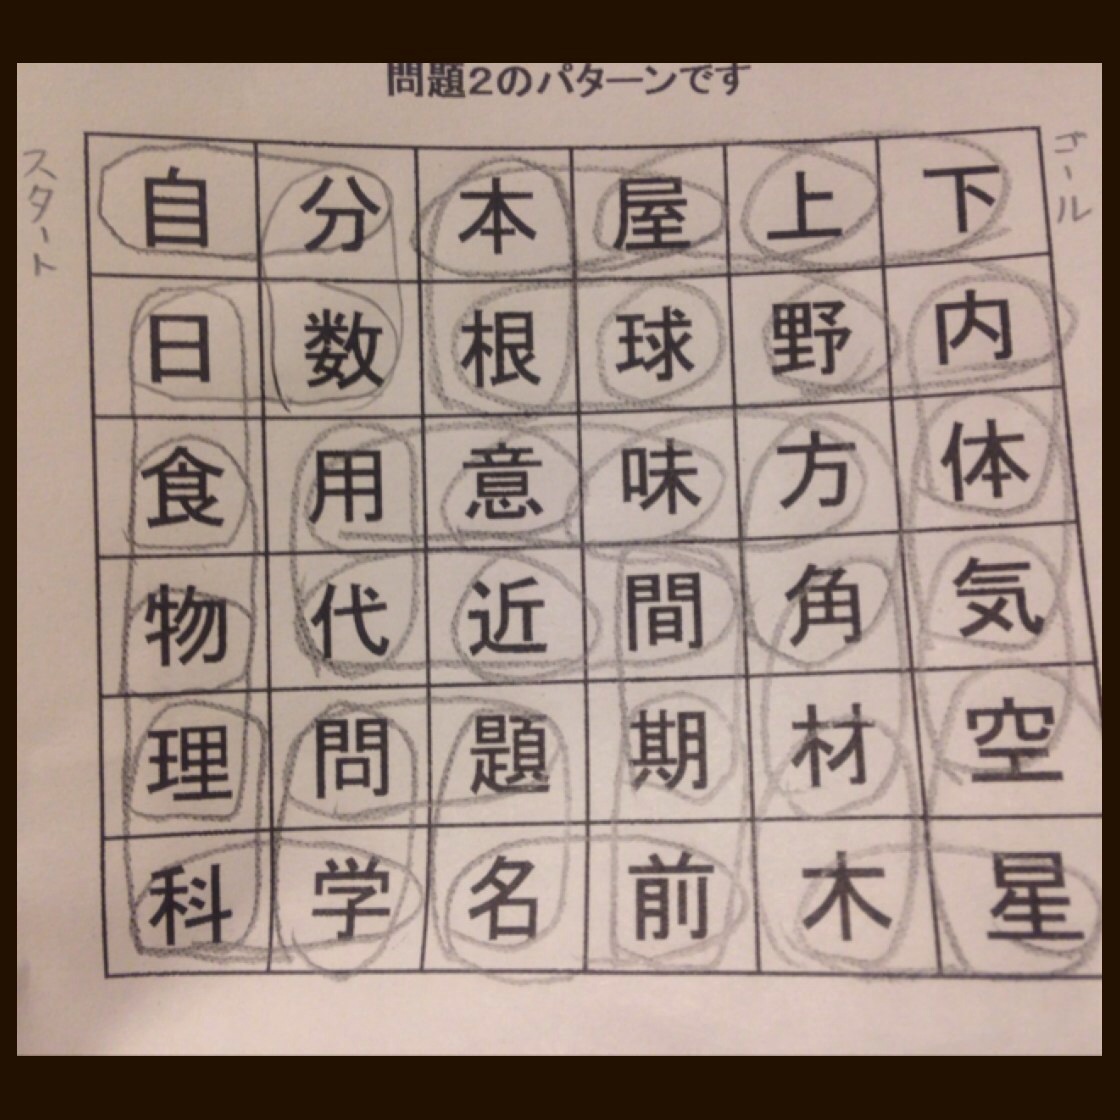 問題2のパターンです
スタート
ゴール
自分本屋上下
日数根球野内
食用意味方体
物代近間角気
理問題期材空
科学名前木星